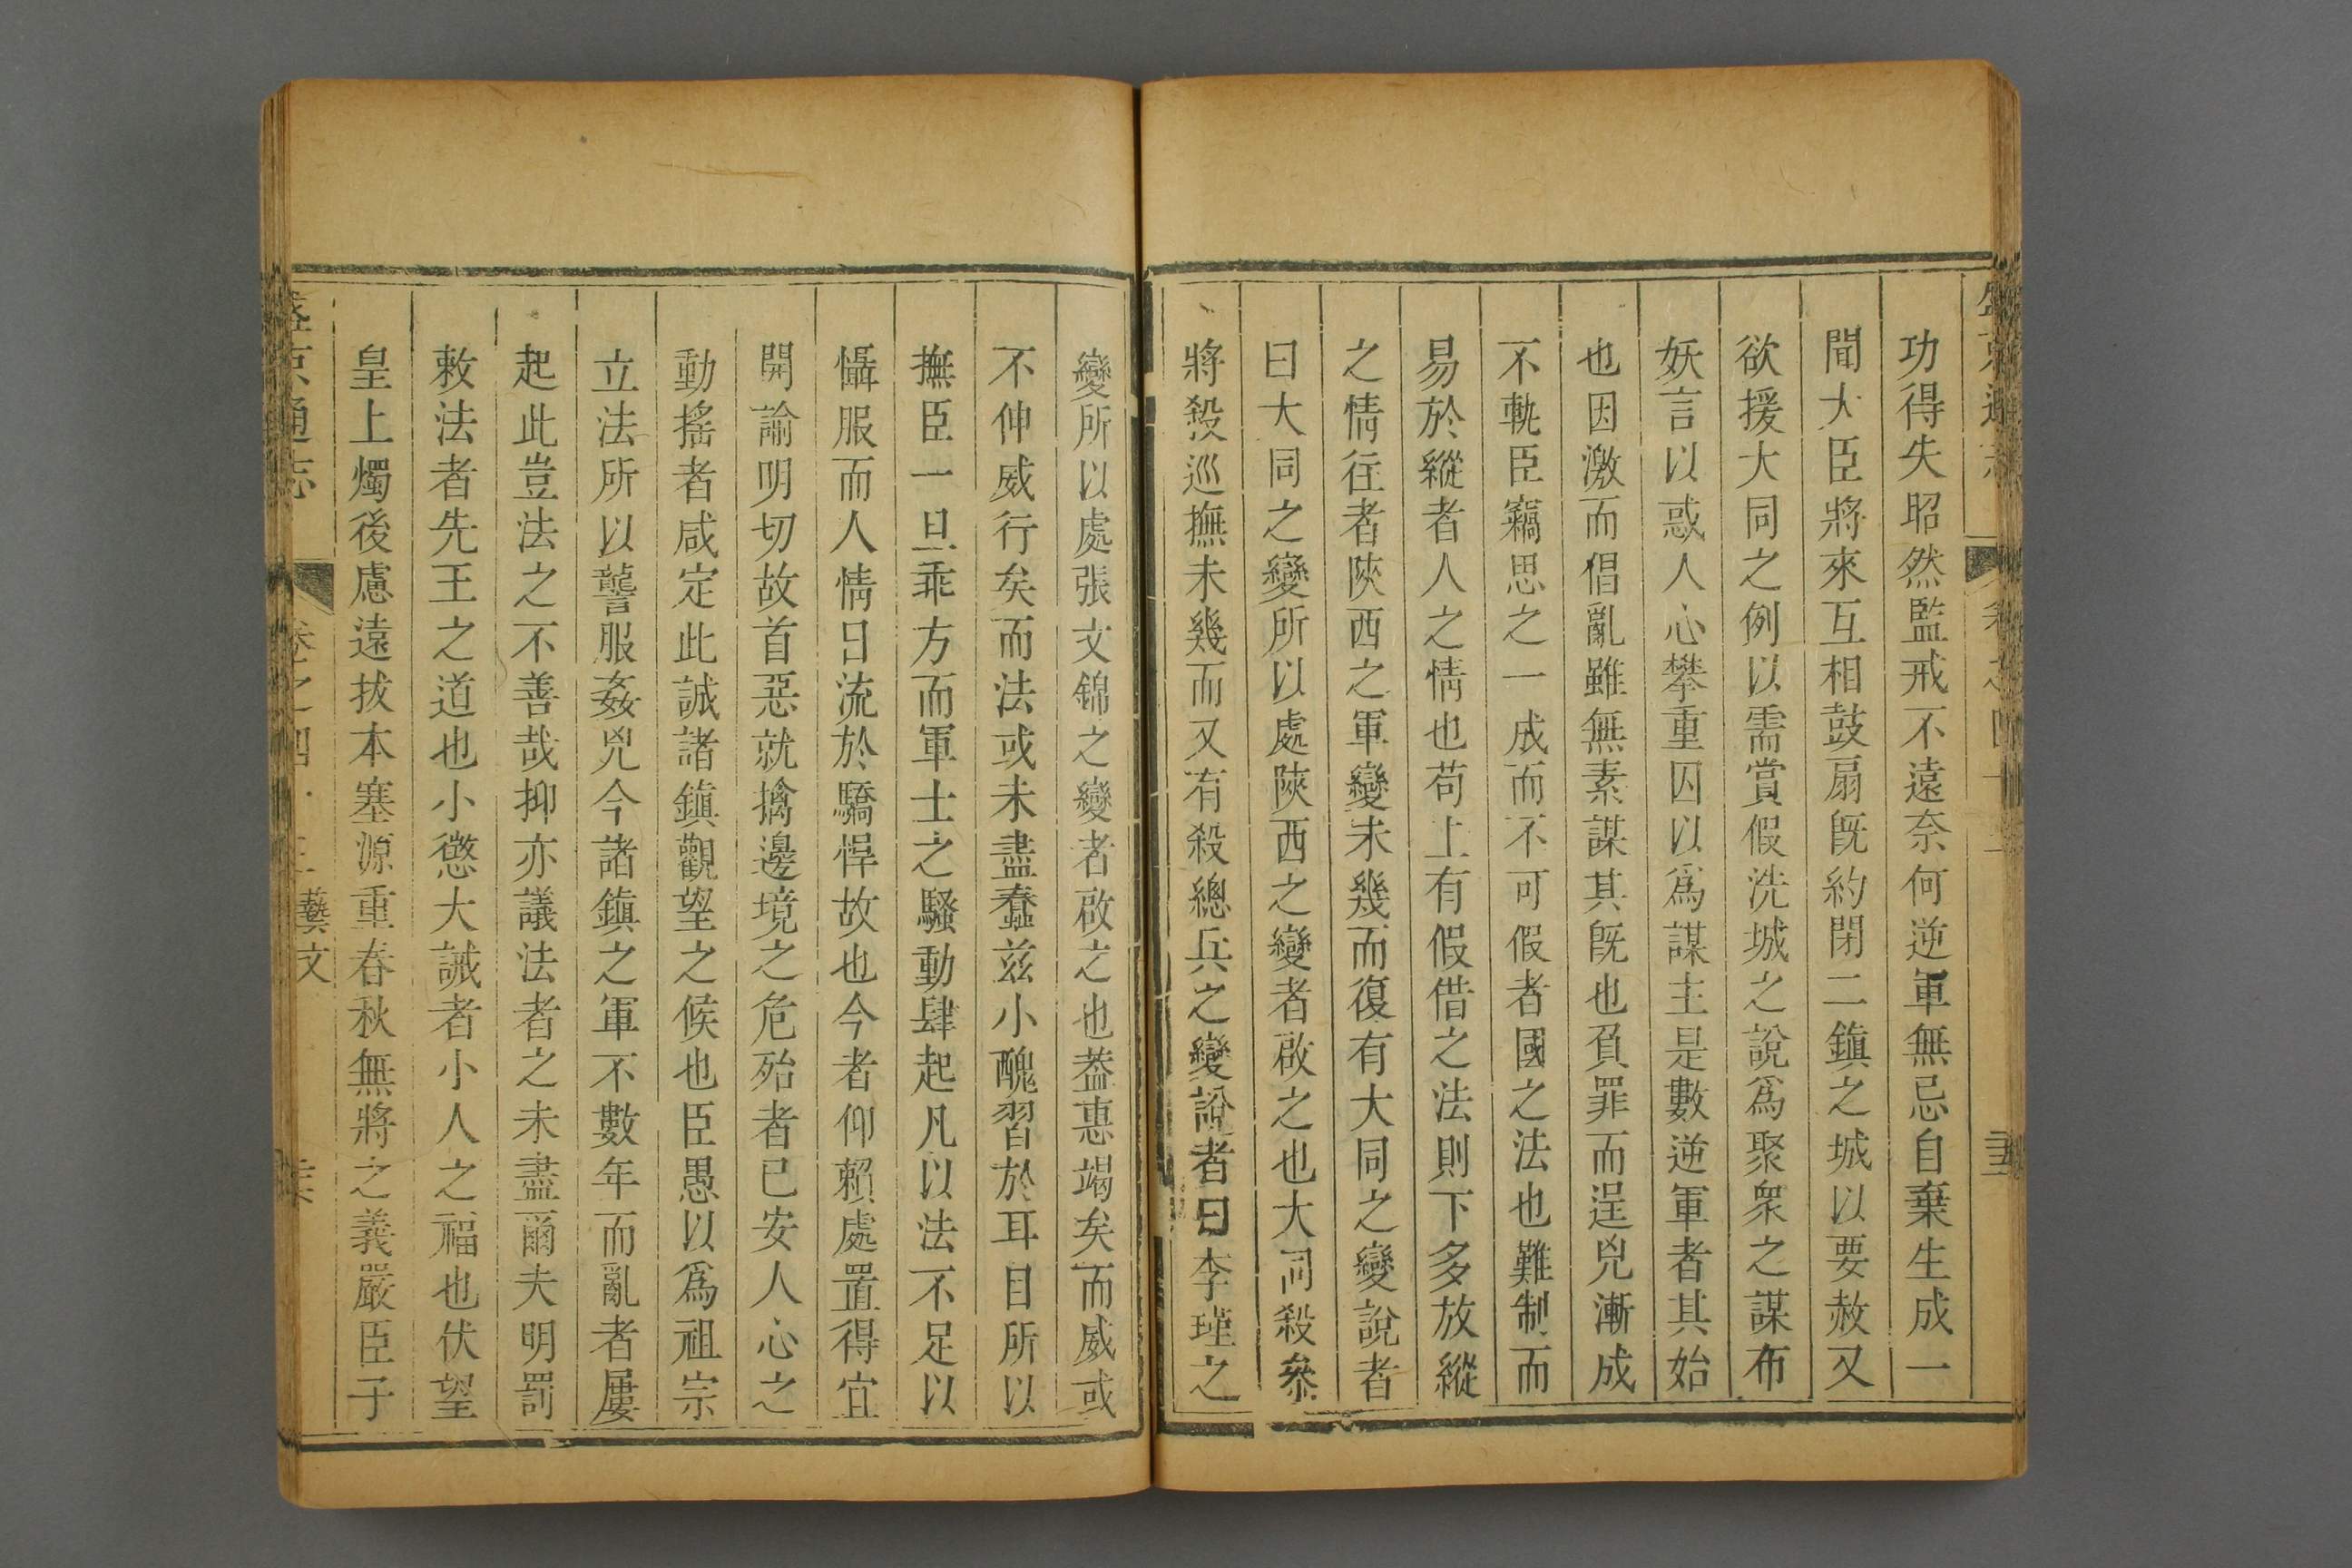 功得失昭然監戒不遠奈何逆軍無忌自棄生成一
聞大臣將來互相鼓扇旣約閉二鎮之城以要赦又
欲援大同之例以需賞假洗城之說爲聚衆之謀布
妖言以惑人心攀重囚以爲謀主是數逆軍者其始
也因激而倡亂雖無素謀其旣也負罪而逞兇漸成
不軌臣竊思之一成而不可假者國之法也難制而
易於縱者人之情也苟上有假借之法則下多放縱
之情往者陝西之軍變未幾而復有大同之變說者
曰大同之變所以處陝西之變者啟之也大同殺叅
將殺巡撫未幾而又有殺總兵之變說者曰李瑾之
變所以處張文錦之變者啟之也葢惠竭矣而威或
不伸威行矣而法或未盡蠢茲小醜習於耳目所以
撫臣一旦乖方而軍士之騷動肆起凡以法不足以
懾服而人情日流於驕悍故也今者仰賴處置得宜
開諭明切故首惡就擒邊境之危殆者已安人心之
動搖者咸定此誠諸鎮觀望之候也臣愚以爲祖宗
立法所以讋服姦兇今諸鎮之軍不數年而亂者屢
起此豈法之不善哉抑亦議法者之未盡爾夫明罰
敕法者先王之道也小懲大誡者小人之福也伏望
皇上燭後慮遠拔本塞源重春秋無將之義嚴臣子
盛京通志 卷之四十三 藝文